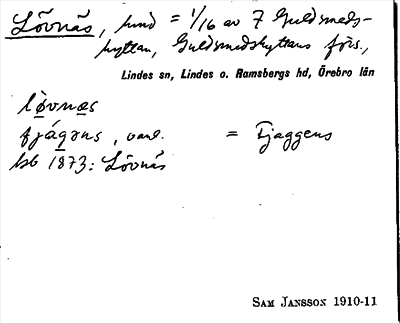 Lövnäs, hmd = 1/16 av 7 Guldsmeds-
hyttan, Guldsmedshyttans förs.,
Lindes sn, Lindes o. Ramsbergs hd, Örebro län
lövnæs
fjágəns, vard. = Fjaggens
hsb 1873: Lövnäs
SAM JANSSON 1910-11